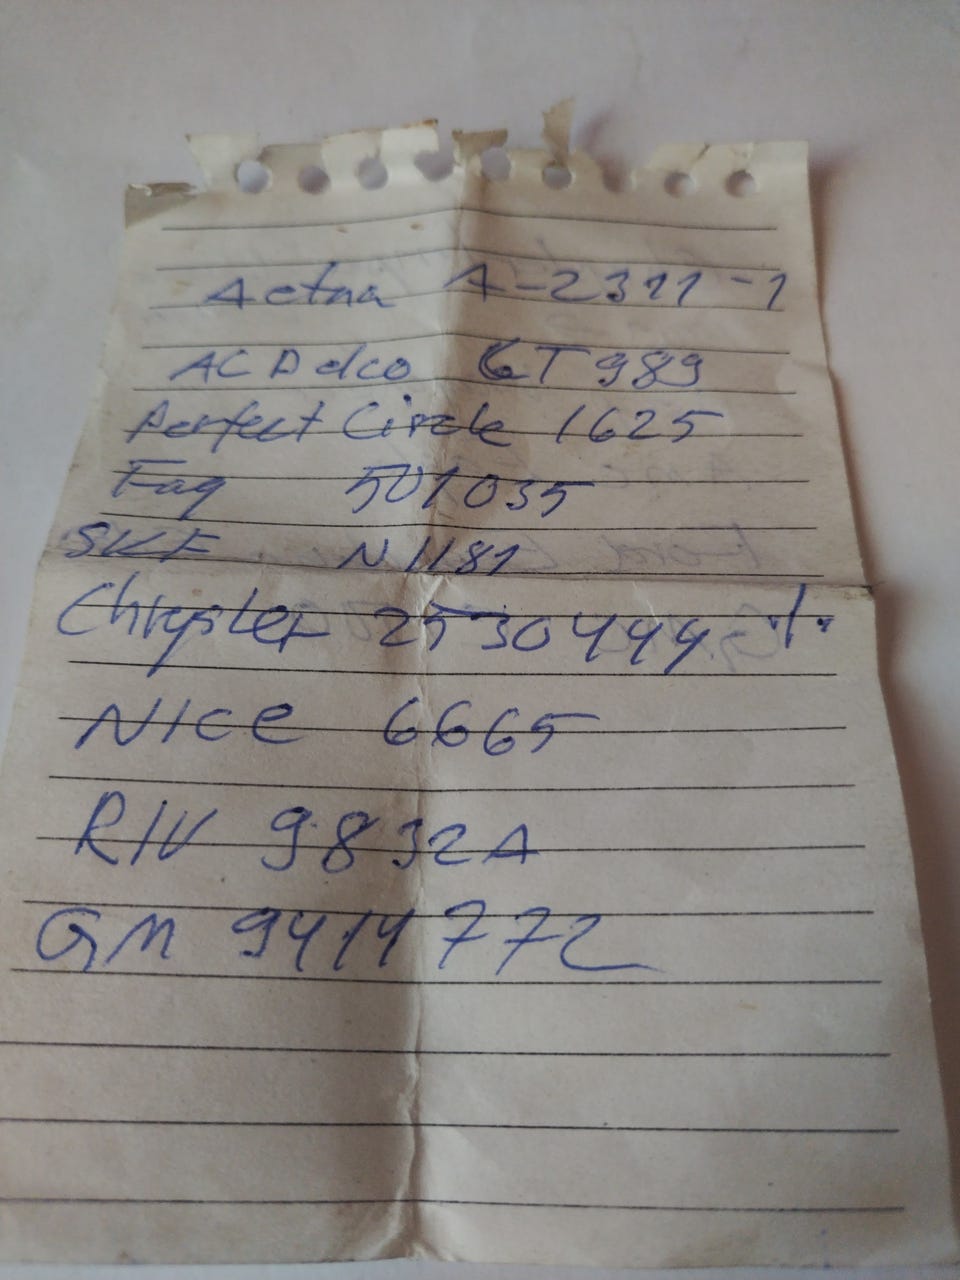 Aetna A-2311-1
AC Delco CT989
Perfect Circle 1625
Fag 501035
SKF N1181
Chrysler 2530444
NICE 6665
RIV 9832A
GM 9414772